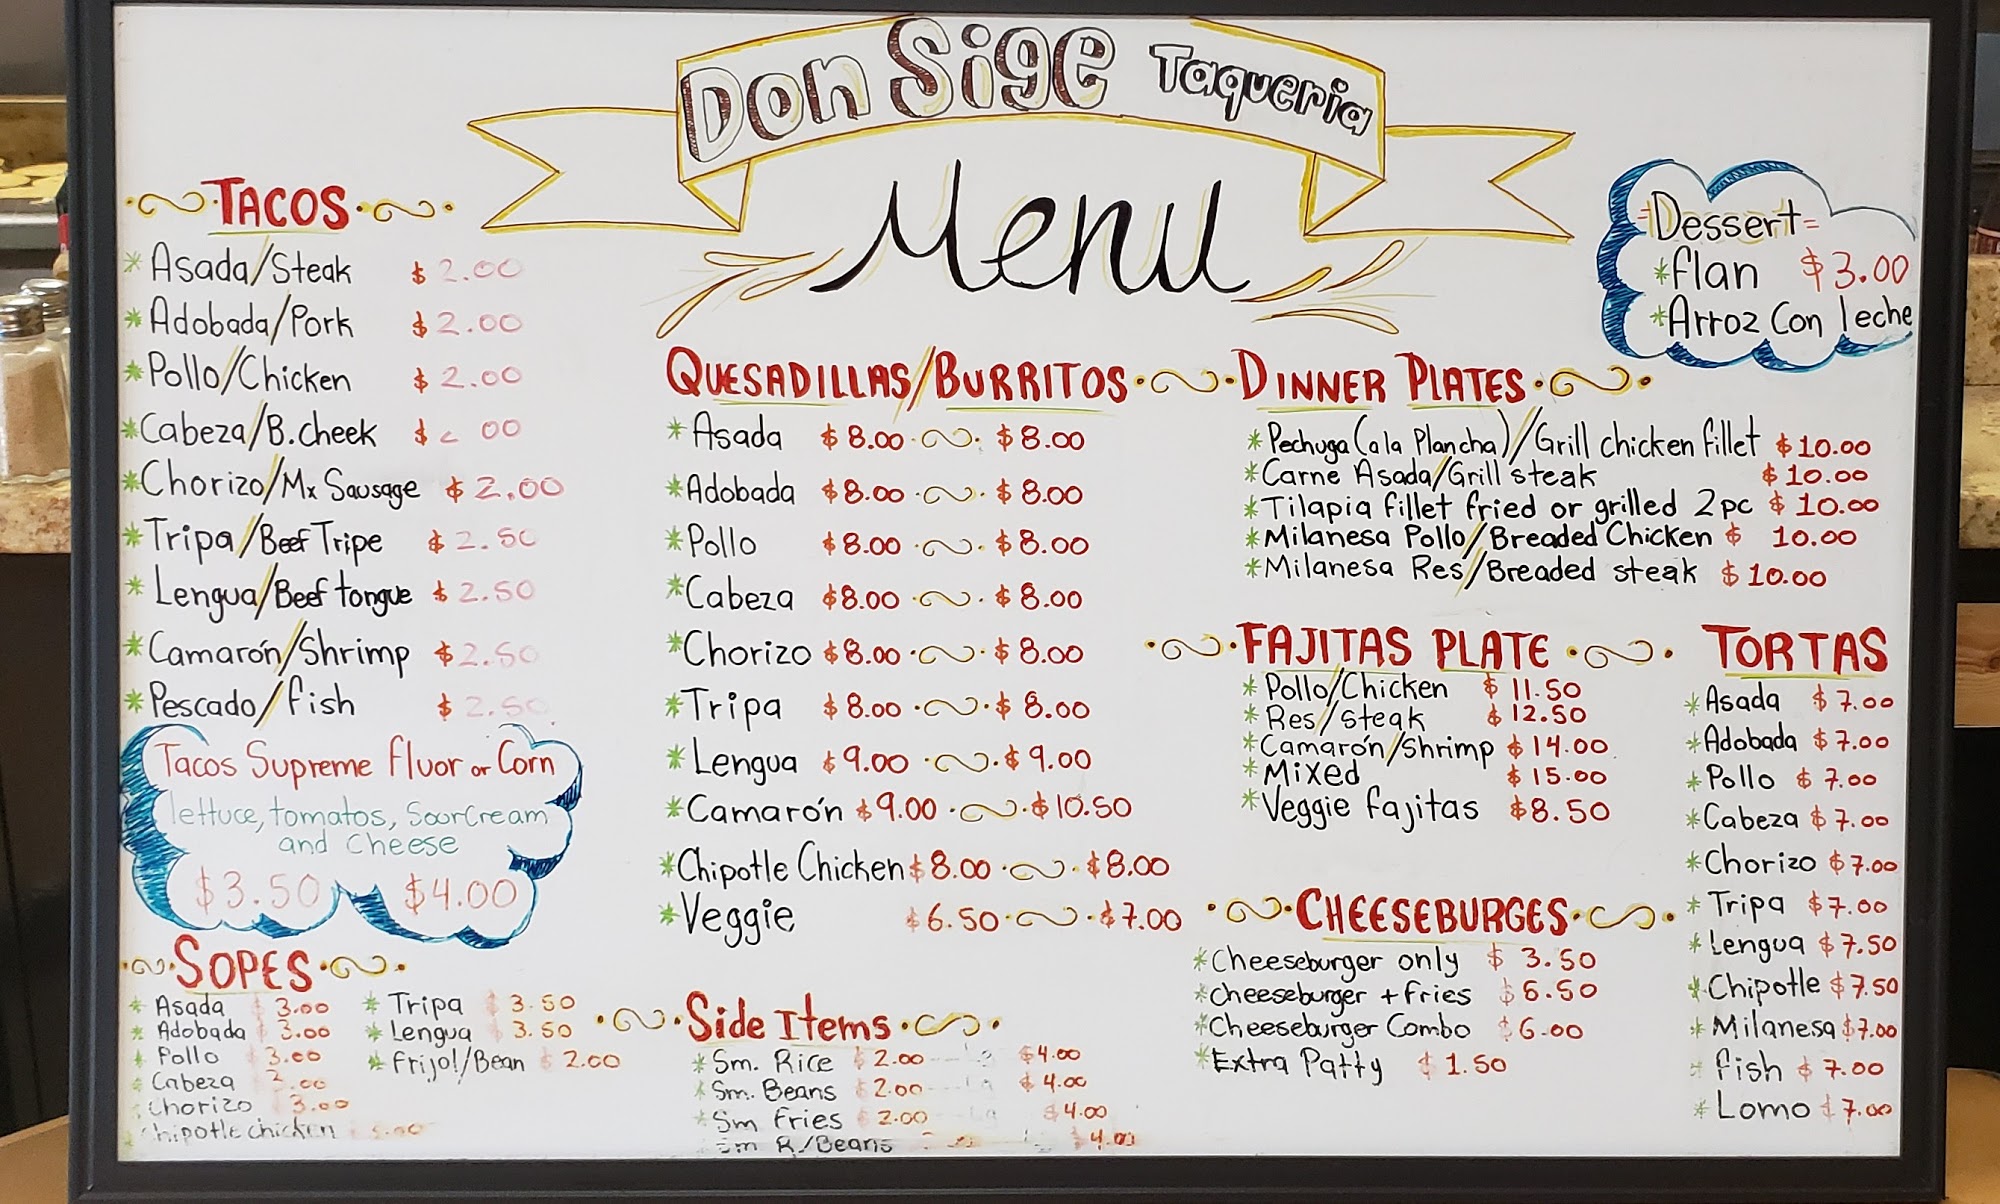 Don Sige Taqueria
Menu
TACOS
*Asada/Steak $2.00
*Adobada/Pork $2.00
*Pollo/Chicken $2.00
*Cabeza/B.cheek $ 00
*Chorizo/Mx Sausage $2.00
*Tripa/Beef Tripe $2.50
*Lengua/Beef tongue $2.50
*Camarón/Shrimp $2.50
*Pescado/fish $2.50
Tacos Supreme Fluor or Corn
lettuce, tomatos, SourCream
and Cheese
$3.50 $4.00
SOPES
*Asada $3.00
*Adobada $3.00
*Pollo $3.00
*Cabeza .00
Chorizo 3.00
chipotle chicken
*Tripa $3.50
*Lengua $3.50
*Frijol/Bean $2.00
QUESADILLAS/BURRITOS
*Asada $8.00 $8.00
*Adobada $8.00 $8.00
*Pollo $8.00 $8.00
*Cabeza $8.00 $8.00
*Chorizo $8.00 $8.00
*Tripa $8.00 $8.00
*Lengua $9.00 $9.00
*Camarón $9.00 $10.50
*Chipotle Chicken $8.00 $8.00
*Veggie $6.50 $7.00
Side Items
*Sm. Rice $2.00 lg $4.00
*Sm. Beans $2.00 lg $4.00
*Sm Fries $2.00 lg $4.00
Sm R/Beans $4.00
Dessert
*flan $3.00
*Arroz Con leche
DINNER PLATES
*Pechuga (a la Plancha)/Grill chicken fillet $10.00
*Carne Asada/Grill steak $10.00
*Tilapia fillet fried or grilled 2pc $10.00
*Milanesa Pollo/Breaded Chicken $10.00
*Milanesa Res/Breaded steak $10.00
FAJITAS PLATE
*Pollo/Chicken $11.50
*Res/steak $12.50
*Camarón/Shrimp $14.00
*Mixed $15.00
*Veggie fajitas $8.50
CHEESEBURGES
*Cheeseburger only $3.50
*cheeseburger + fries $5.50
*Cheeseburger Combo $6.00
*Extra Patty $1.50
TORTAS
*Asada $7.00
*Adobada $7.00
*Pollo $7.00
*Cabeza $7.00
*Chorizo $7.00
*Tripa $7.00
*Lengua $7.50
*Chipotle $7.50
*Milanesa $7.00
*fish $7.00
*Lomo $7.00